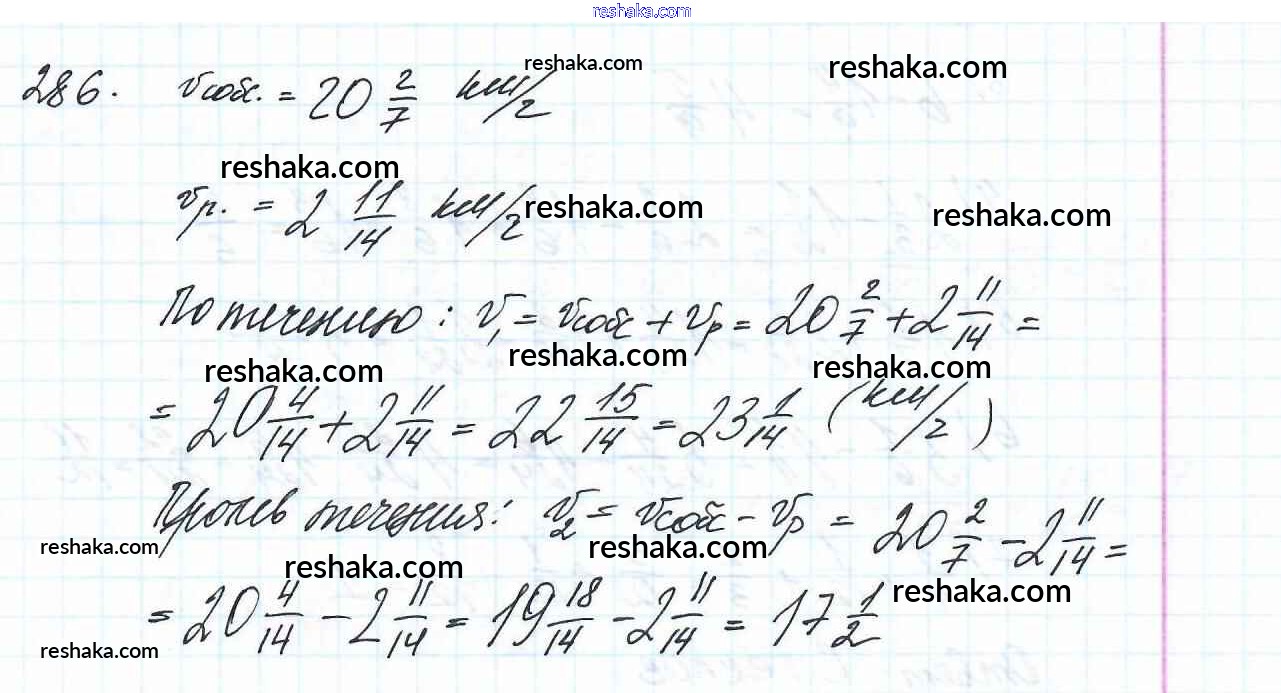 reshaka.com
286. vсоб. = 20 2/7 км/ч
reshaka.com
reshaka.com
reshaka.com
vр. = 2 11/14 км/ч
reshaka.com
reshaka.com
По течению: v₁ = vсоб + vр = 20 2/7 + 2 11/14 =
reshaka.com
reshaka.com
reshaka.com
= 20 4/14 + 2 11/14 = 22 15/14 = 23 1/14 (км/ч)
Против течения: v₂ = vсоб - vр = 20 2/7 - 2 11/14 =
reshaka.com
reshaka.com
reshaka.com
reshaka.com
= 20 4/14 - 2 11/14 = 19 18/14 - 2 11/14 = 17 1/2
reshaka.com